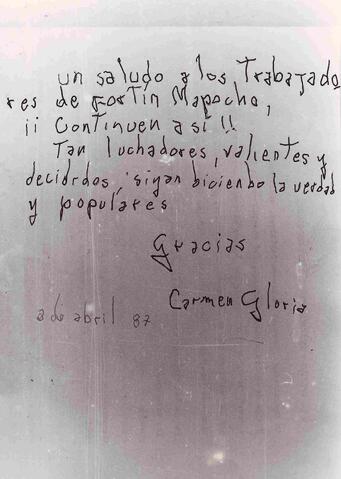 un saludo a los Trabajado
res de Fortin Mapocho,
¡¡ Continuen así !!
Tan luchadores, valientes y
decidordos, sigan biciendo la verdad
y populares
Gracias
Carmen Gloria
a de abril 87